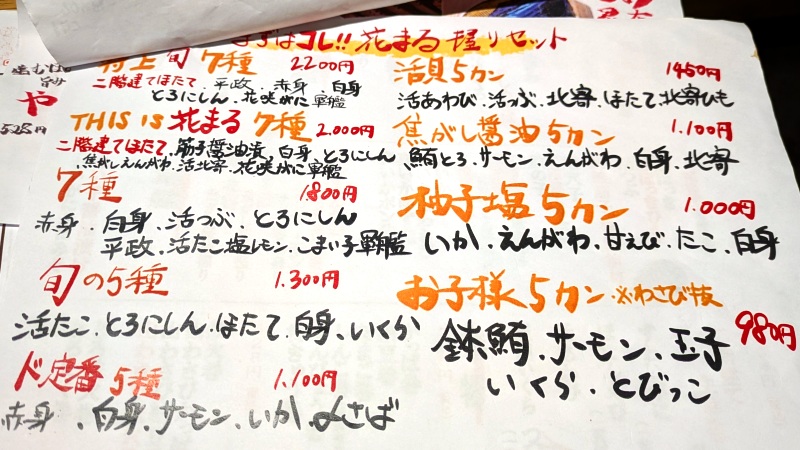 まずはコレ!! 花まる 握りセット
特上旬 7種 2200円
二階建てほたて、平政、赤身、白身
とろにしん、花咲がに軍艦
THIS IS 花まる 7種 2.000円
二階建てほたて、筋子醤油漬、白身、とろにしん
焦がしえんがわ、活北寄、花咲がに軍艦
7種 1.800円
赤身、白身、活つぶ、とろにしん
平政、活たこ塩レモン、こまい子軍艦
旬の5種 1.300円
活たこ、とろにしん、ほたて、白身、いくら
ド定番 5種 1.100円
赤身、白身、サーモン、いか、〆さば
活貝5カン 1450円
活あわび、活つぶ、北寄、ほたて、北寄ひも
焦がし醤油5カン 1.100円
鮪とろ、サーモン、えんがわ、白身、北寄
柚子塩5カン 1.000円
いか、えんがわ、甘えび、たこ、白身
お子様5カン ※わさび抜
980円
鉄鮪、サーモン、玉子
いくら、とびっこ
や
525円